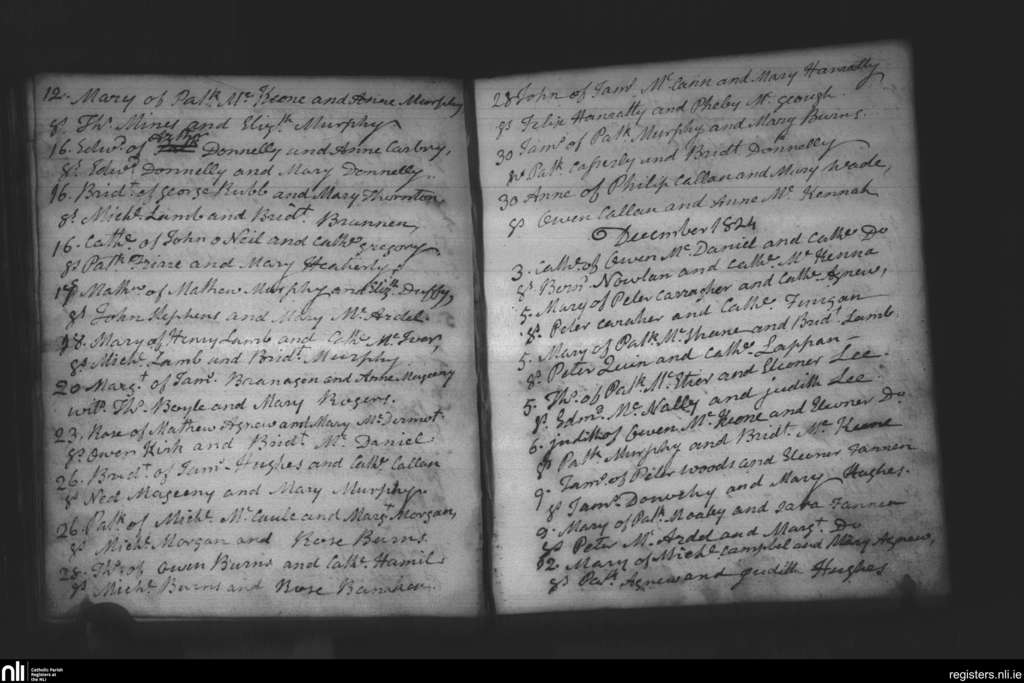 12. Mary of Patk. Mc. Keone and Anne Murphy
Ss. Ths. Mines and Elizth. Murphy
16. Edwd. of Arthr. Donnelly and Anne Carbry,
Ss. Edwd. Donnelly and Mary Donnelly.
16. Bridt. of George Bubb and Mary Thornton
Ss. Michl. Lamb and Bridt. Brannen
16. Cathe. of John o Neil and Cathe. Gregory
Ss. Patk. Friare and Mary
17 Mathw. of Mathew Murphy and Elizth. Duffy,
Ss. John Stephens and Mary Mc. Ardel.
18. Mary of Henry Lamb and Cathe. Mc. Iver,
Ss. Michl. Lamb and Bridt. Murphy
20 Margt. of Jams. Branagen and Anne Mageeny
wits. Ths. Boyle and Mary Rogers.
23. Rose of Mathew Agnew and Mary Mc. Dermot
Ss Owen Kirk and Bridt. Mc. Daniel
26. Bridt. of Jams. Hughes and Cathe. Callan
Ss Ned Mageeny and Mary Murphy.
26. Patk. of Michl. Mc. Caule and Margt. Morgan,
Ss Michl. Morgan and Rose Burns.
28. Ths. of Owen Burns and Cathe. Hamil
Ss Michl. Burns and Rose
28 John of Jams. Mc. Cann and Mary Hanratty
Ss Felix Hanratty and Pheby Mc. Geough.
30 Jams. of Patk. Murphy and Mary Burns.
Ss Patk. Caferly and Bridt. Donnelly
30 Anne of Philip Callan and Mary Wade,
Ss Owen Callan and Anne Mc. Kennah
December 1824
3. Cathe. of Owen Mc. Daniel and Cathe. Do
Ss. Bernd. Nowlan and Cathe. Mc. Kenna
5. Mary of Peter Carragher and Cathe. Agnew,
Ss. Peter Caraher and Cathe. Finigan
5. Mary of Patk. Mc. Shane and Bridt. Lamb.
Ss. Peter Quin and Cathe. Lappan
5. Ths. of Patk. Mc. and Eleoner Lee.
Ss. Edmd. Mc. Nally and Judith Lee
6. Judith of Owen Mc. Keone and Eleoner Do
Ss Patk. Murphy and Bridt. Mc. Keone
9. Jams. of Peter Woods and Eleoner Fannen
Ss Jams. and Mary Hughes.
9. Mary of Patk. and Sara Fannen
Ss Peter Mc. Ardel and Margt. Do
12. Mary of Michl. Campbel and Mary Agnew,
Ss Patk. Agnew and Judith Hughes
nli
Catholic Parish
Registers at
the NLI
registers.nli.ie